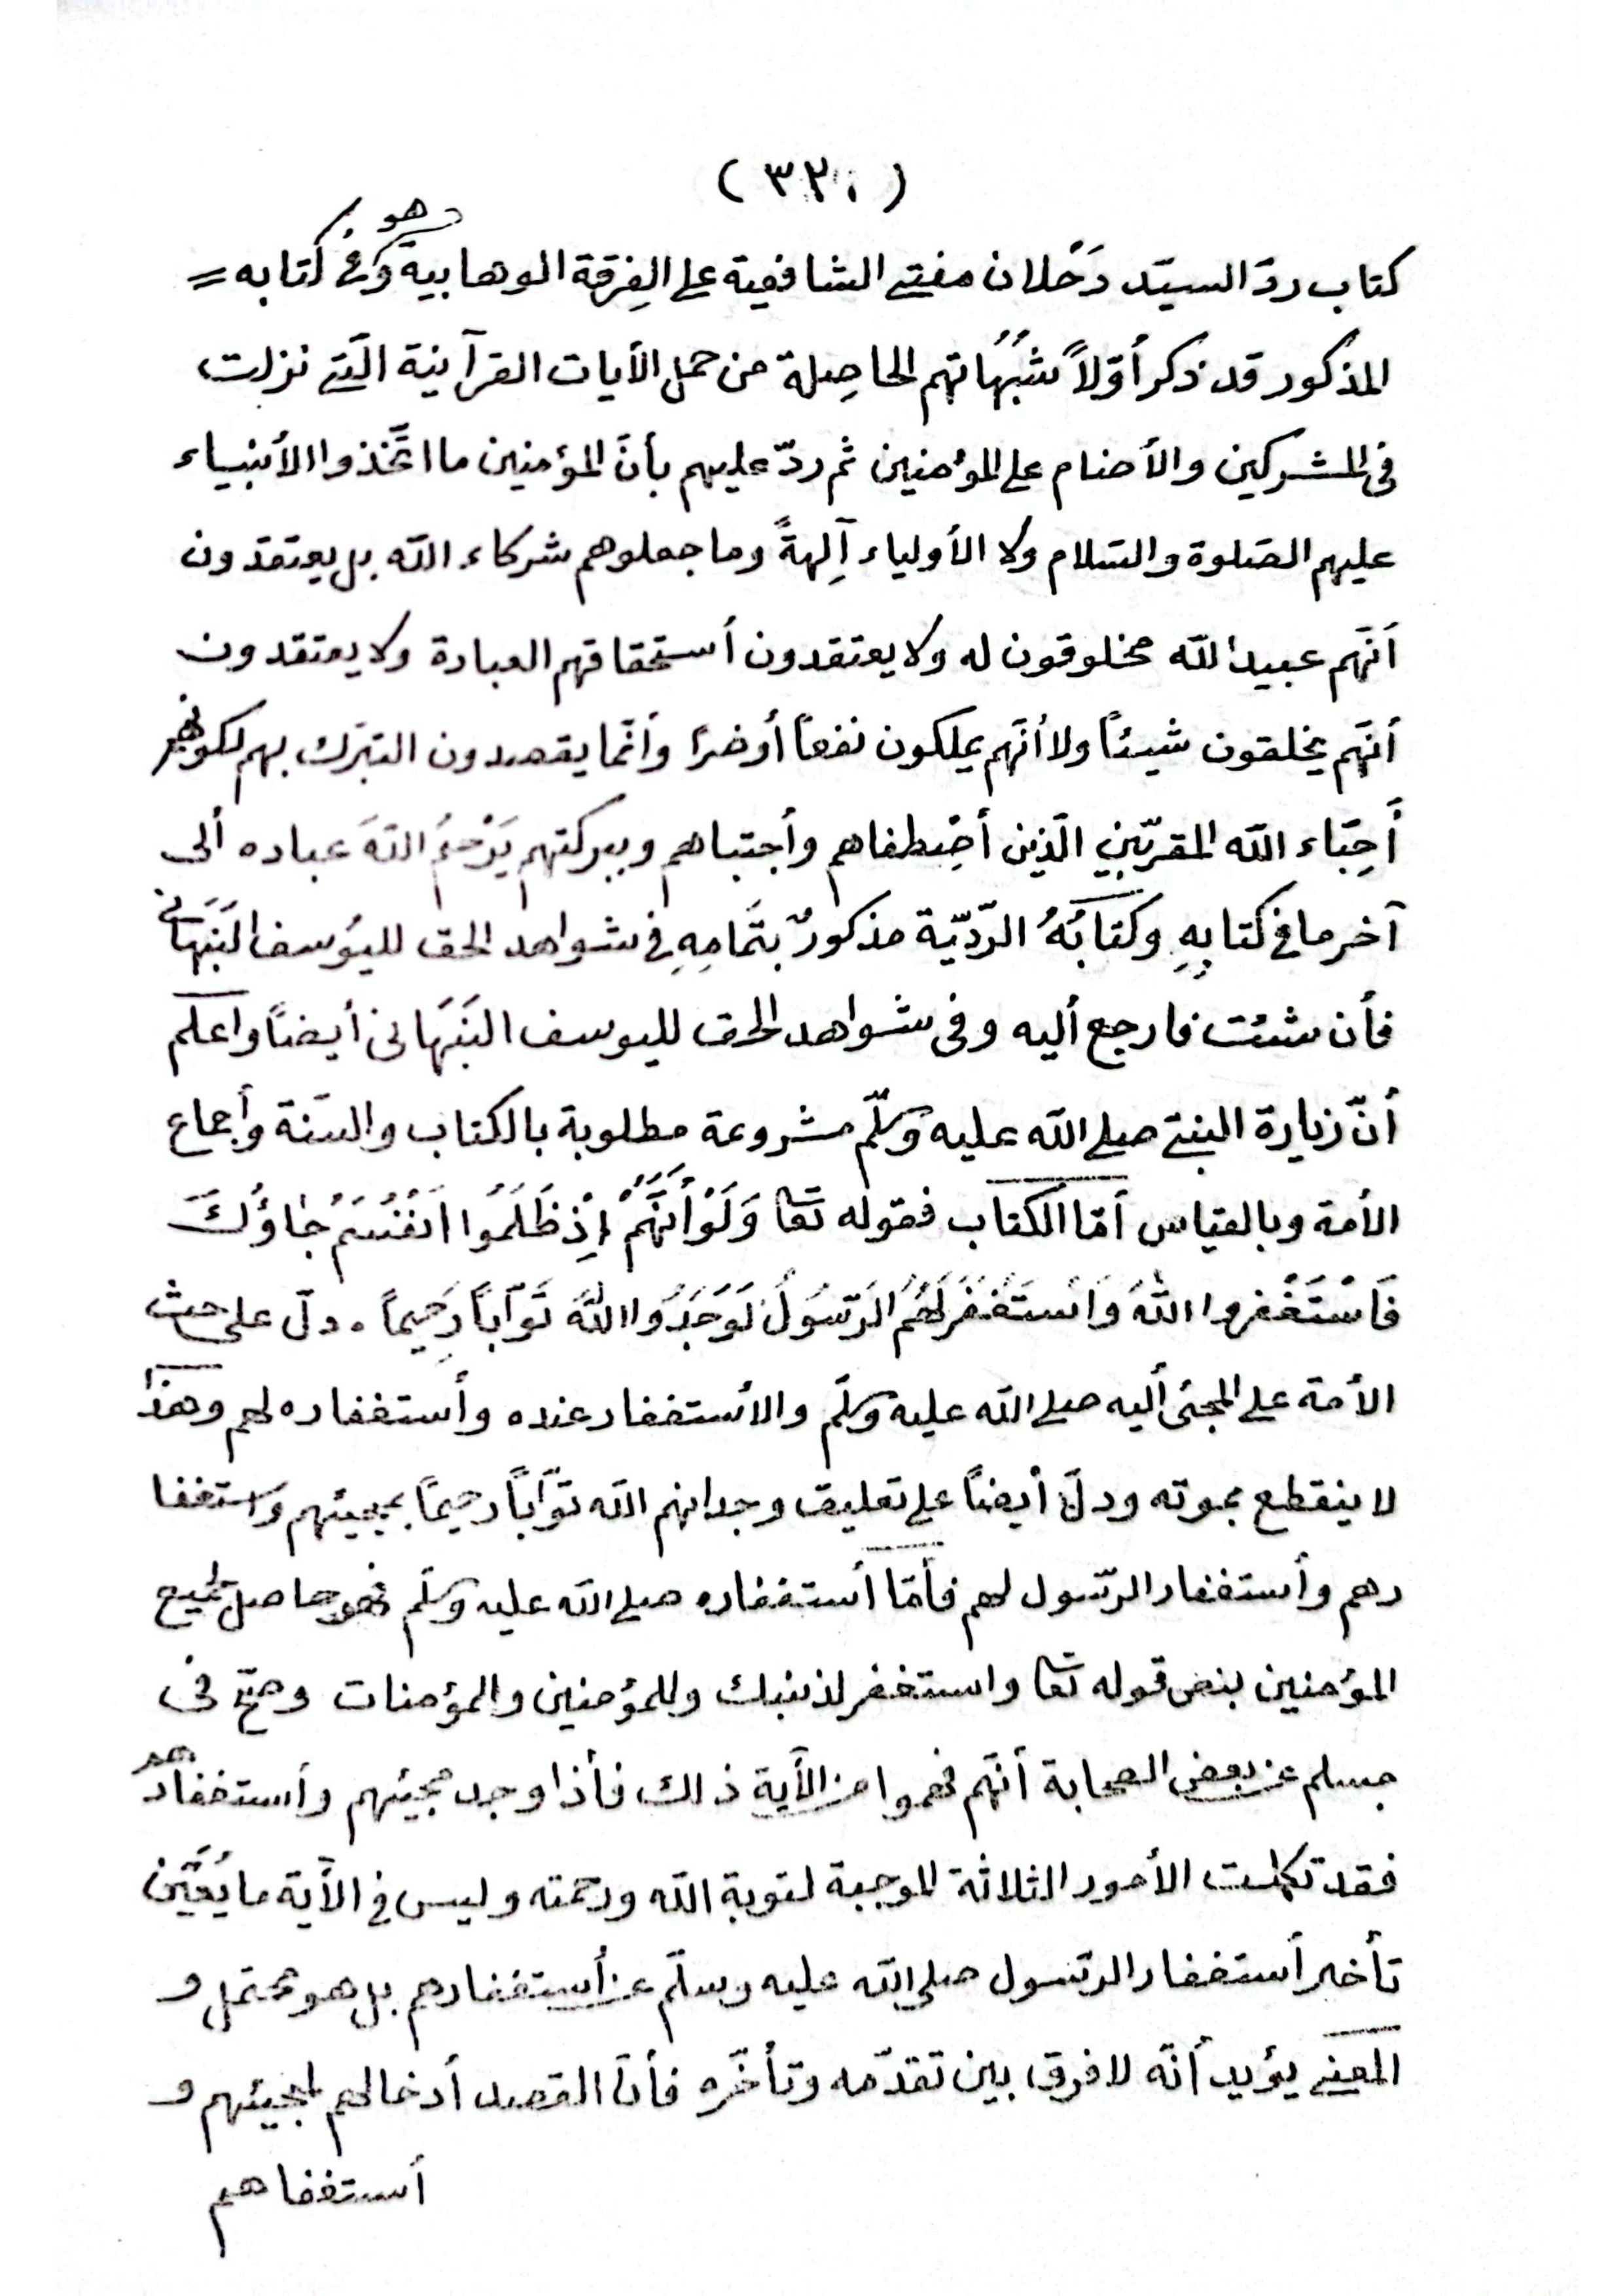 (٣٢٠)
كتاب ردّ السيّد دَحْلان مفتى الشافعية على الفِرقة الوهابية وهو فى كتابه =
المذكور قد ذكر أوّلاً شُبُهَاتهم الحاصِلة من حمل الأيات القرآنية الّتى نزلت
فى المشركين والأصنام على المؤمنين ثم ردّ عليهم بأنّ المؤمنين ما اتّخذوا الأنبياء
عليهم الصّلوة والسّلام ولا الأولياء آلِهةً وما جعلوهم شركاء الله بل يعتقدون
أنّهم عبيد الله مخلوقون له ولا يعتقدون أستحقاقهم العبادة ولا يعتقدون
أنّهم يخلقون شيئاً ولا أنّهم يملكون نفعاً أو ضرّا وأنّما يقصدون التبرّك بهم لكونهم
أَحِبّاء الله المقرّبين الّذين أصْطفاهم وأجتباهم وببركتهم يَرْحَمُ اللهَ عباده ألى
آخر ما فى كتابِهِ وكتَابُهُ الرّدّيّة مذكورٌ بتَمَامِهِ فى شواهد الحق لليُوسف النَبَهَانى
فأن شئت فارجع أليه وفى شواهد الحق لليوسف النَبَهَانى أيضاً واعلم
أنّ زيارة النبىّ صلى الله عليه وسلّم مشروعة مطلوبة بالكتاب والسّنة وأجماع
الأمة وبالقياس أمّا الكتاب فقوله تعا وَلَوْ أَنَّهُمْ إِذْ ظَلَمُوا اَنْفُسَهُمْ جٰاؤُكَ
فَاسْتَغْفروا اللّٰهَ وَاسْتَغْفَرَ لَهُمُ الرّسُولُ لَوَجَدُوا اللّٰهَ تَوّاباً رَحِيماً . دلّ على حث
الأمة على المجئ أليه صلى الله عليه وسلّم والأستغفار عنده وأستغفاره لهم وهذا
لا ينقطع بموته ودلّ أيضاً على تعليق وجدانهم الله توّاباً رحيماً بمجيئهم واستغفا
رهم وأستغفار الرّسول لهم فأمّا أستغفاره صلى الله عليه وسلّم فهو حاصل لجميع
المؤمنين بنص قوله تعا واستغفر لذنبك وللمؤمنين والمؤمنات وصحّ فى
مسلم عن بعض الصحابة أنّهم فهموا من الأية ذلك فأذا وجد مجيئهم وأستغفارهم
فقد تكملت الأمور الثلاثة الموجبة لتوبة الله ورحمته وليس فى الأية ما يُعَيّن
تأخير أستغفار الرّسول صلى الله عليه وسلّم عن أستغفارهم بل هو محتمل و
المعنى يؤيد أنّه لا فرق بين تقدّمه وتأخّره فأنّ القصد أدخالهم لمجيئهم و
أستغفاهم